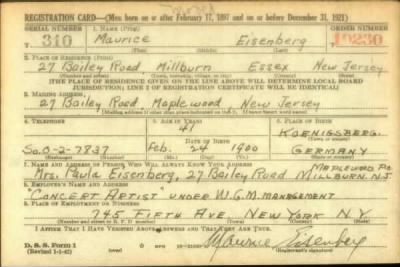 REGISTRATION CARD—(Men born on or after February 17, 1897 and on or before December 31, 1921)
SERIAL NUMBER
T 310
1. NAME (Print)
Maurice Eisenberg
(First) (Middle) (Last)
ORDER NUMBER
10230
2. PLACE OF RESIDENCE (Print)
27 Bailey Road Millburn Essex New Jersey
(Number and street) (Town, township, village, or city) (County) (State)
[THE PLACE OF RESIDENCE GIVEN ON THE LINE ABOVE WILL DETERMINE LOCAL BOARD
JURISDICTION; LINE 2 OF REGISTRATION CERTIFICATE WILL BE IDENTICAL]
3. MAILING ADDRESS
27 Bailey Road, Maplewood New Jersey
[Mailing address if other than place indicated on line 2. If same insert word same]
4. TELEPHONE
So.O-2-7837
(Exchange) (Number)
5. AGE IN YEARS
41
DATE OF BIRTH
Feb. 24 1900
(Mo.) (Day) (Yr.)
6. PLACE OF BIRTH
KOENIGSBERG.
(Town or county)
GERMANY
(State or country)
7. NAME AND ADDRESS OF PERSON WHO WILL ALWAYS KNOW YOUR ADDRESS
Mrs. Paula Eisenberg, 27 Bailey Road MILLBURN. N.J
8. EMPLOYER'S NAME AND ADDRESS
"CONCERT ARTIST" UNDER W.G.M. MANAGEMENT
9. PLACE OF EMPLOYMENT OR BUSINESS
745 FIFTH AVE NEW YORK N.Y.
(Number and street or R. F. D. number) (Town) (County) (State)
I AFFIRM THAT I HAVE VERIFIED ABOVE ANSWERS AND THAT THEY ARE TRUE.
D. S. S. Form 1
(Revised 1-1-42)
(over)
Maurice Eisenberg
(Registrant's signature)